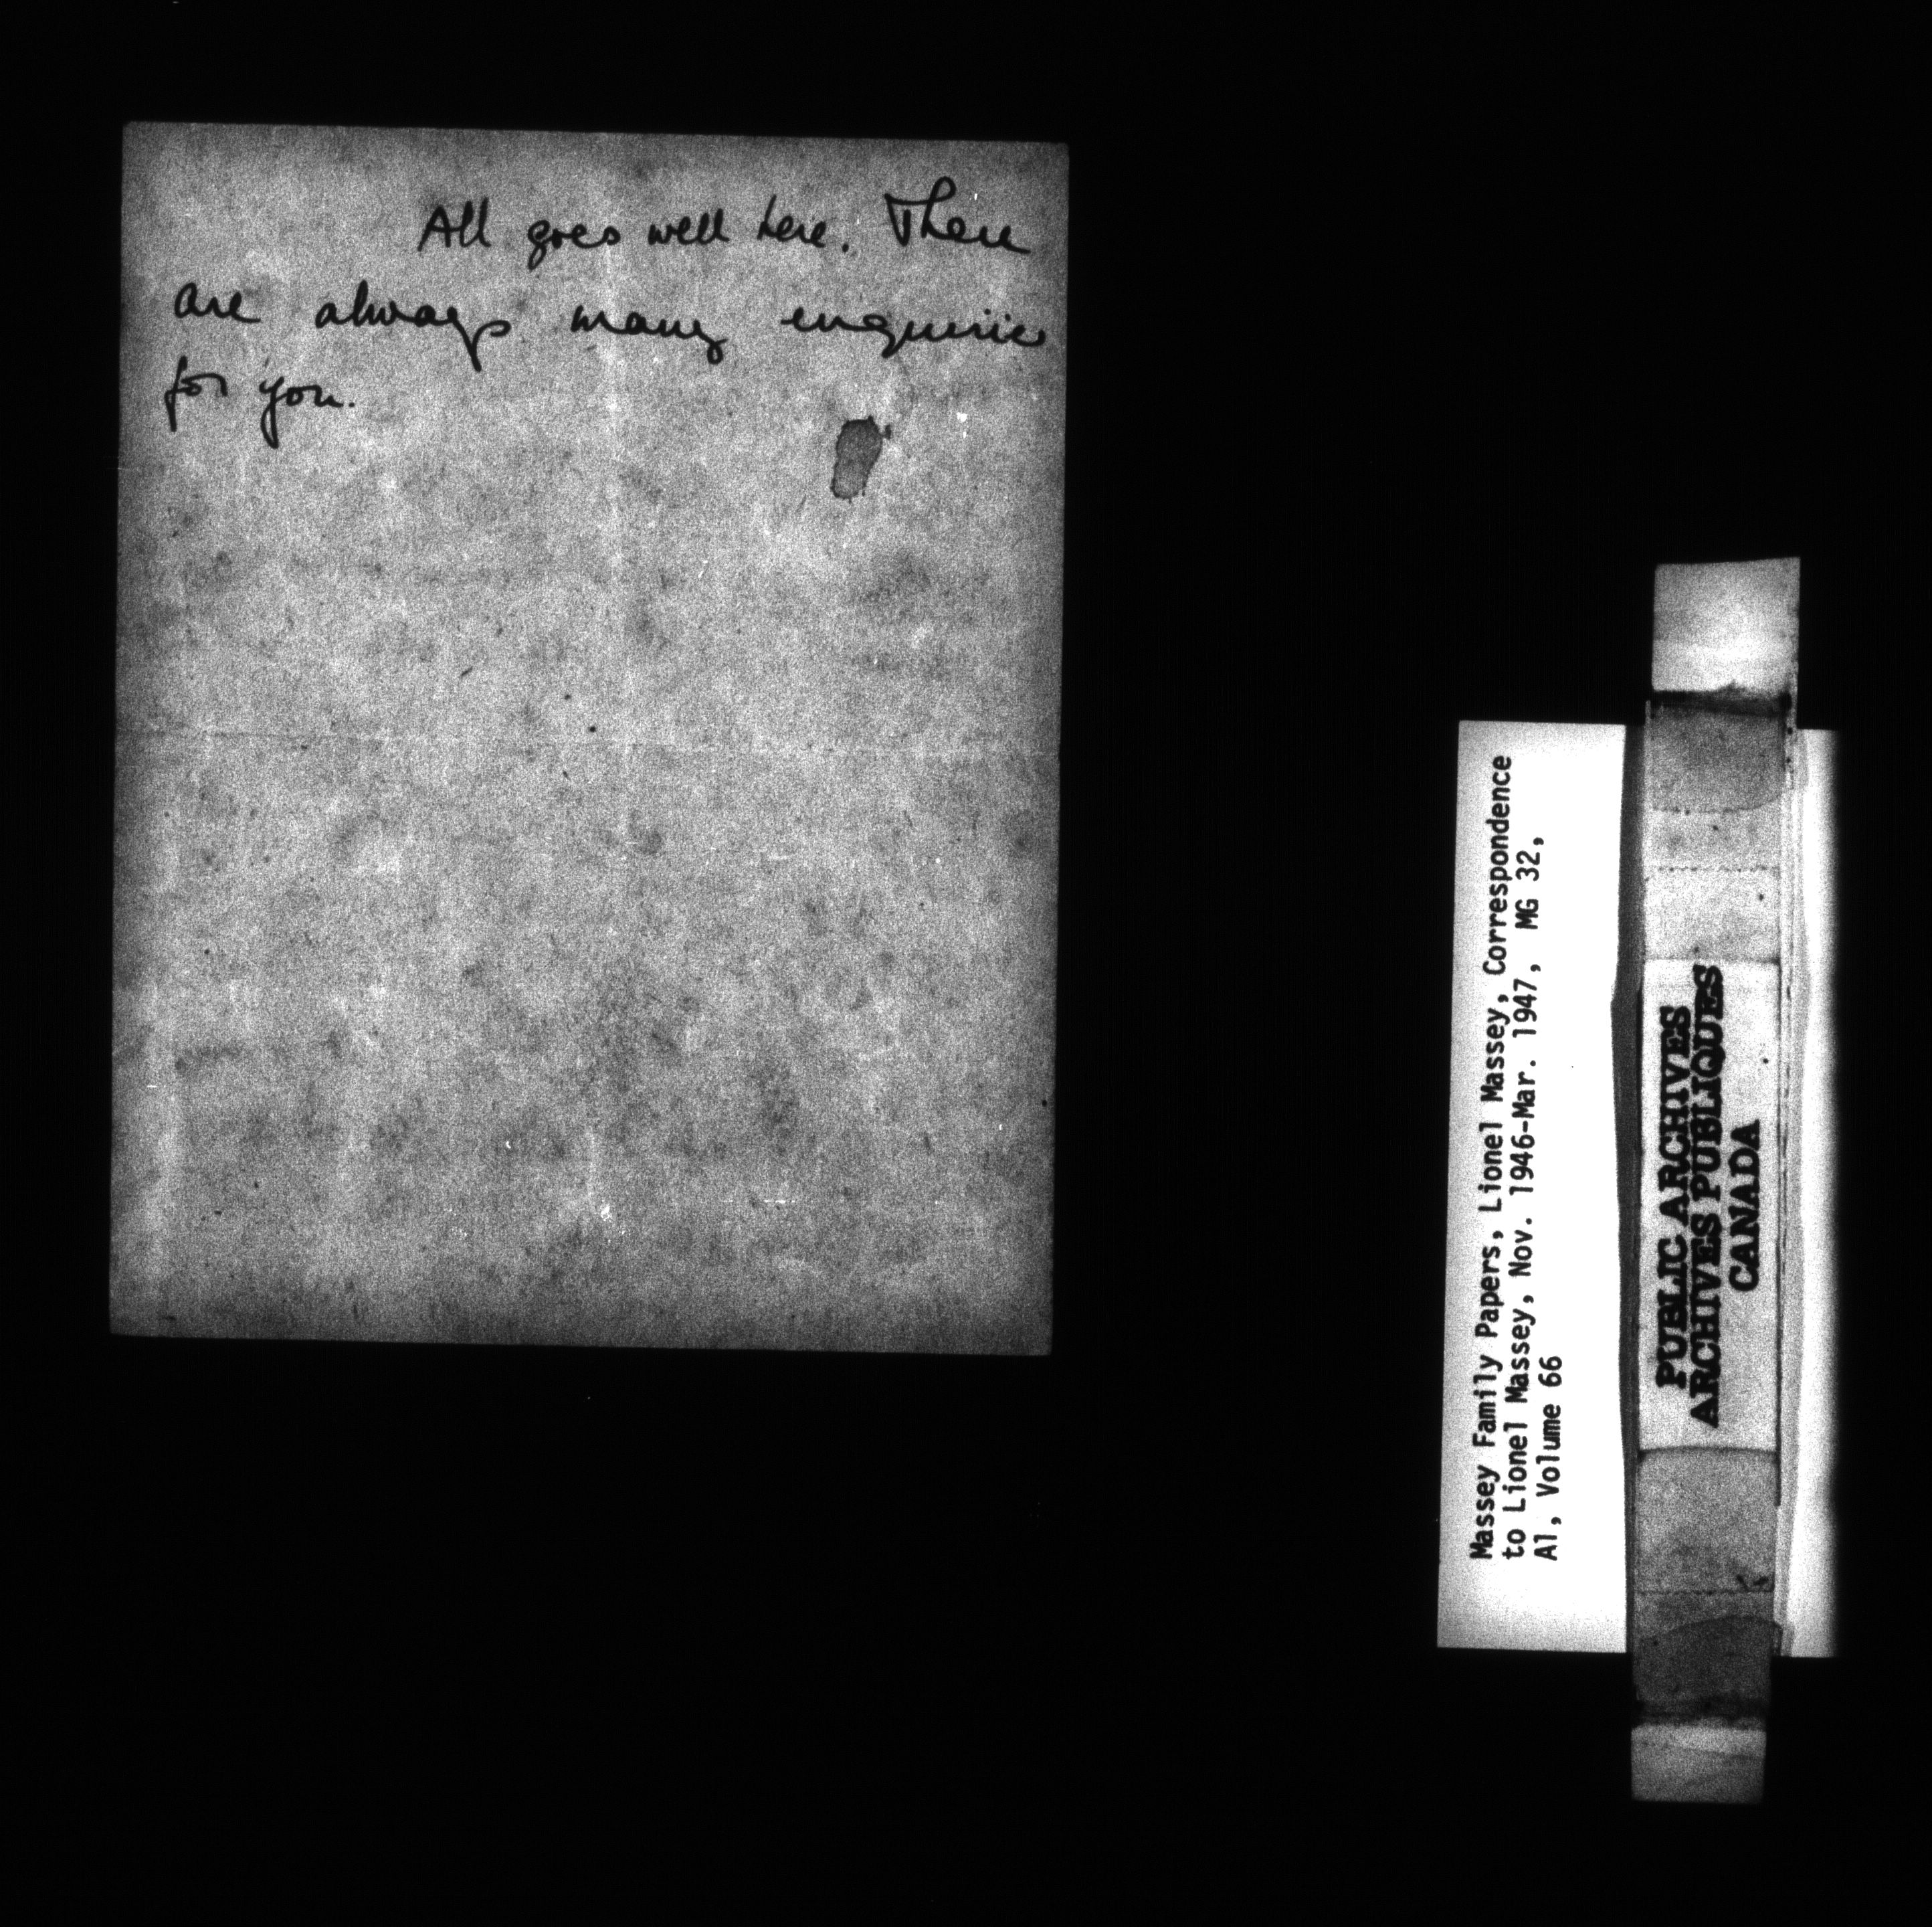 All goes well here. There
are always many enquiries
for you.
Massey Family Papers, Lionel Massey, Correspondence
to Lionel Massey, Nov. 1946-Mar. 1947, MG 32,
A1, Volume 66
PUBLIC ARCHIVES
ARCHIVES PUBLIQUES
CANADA